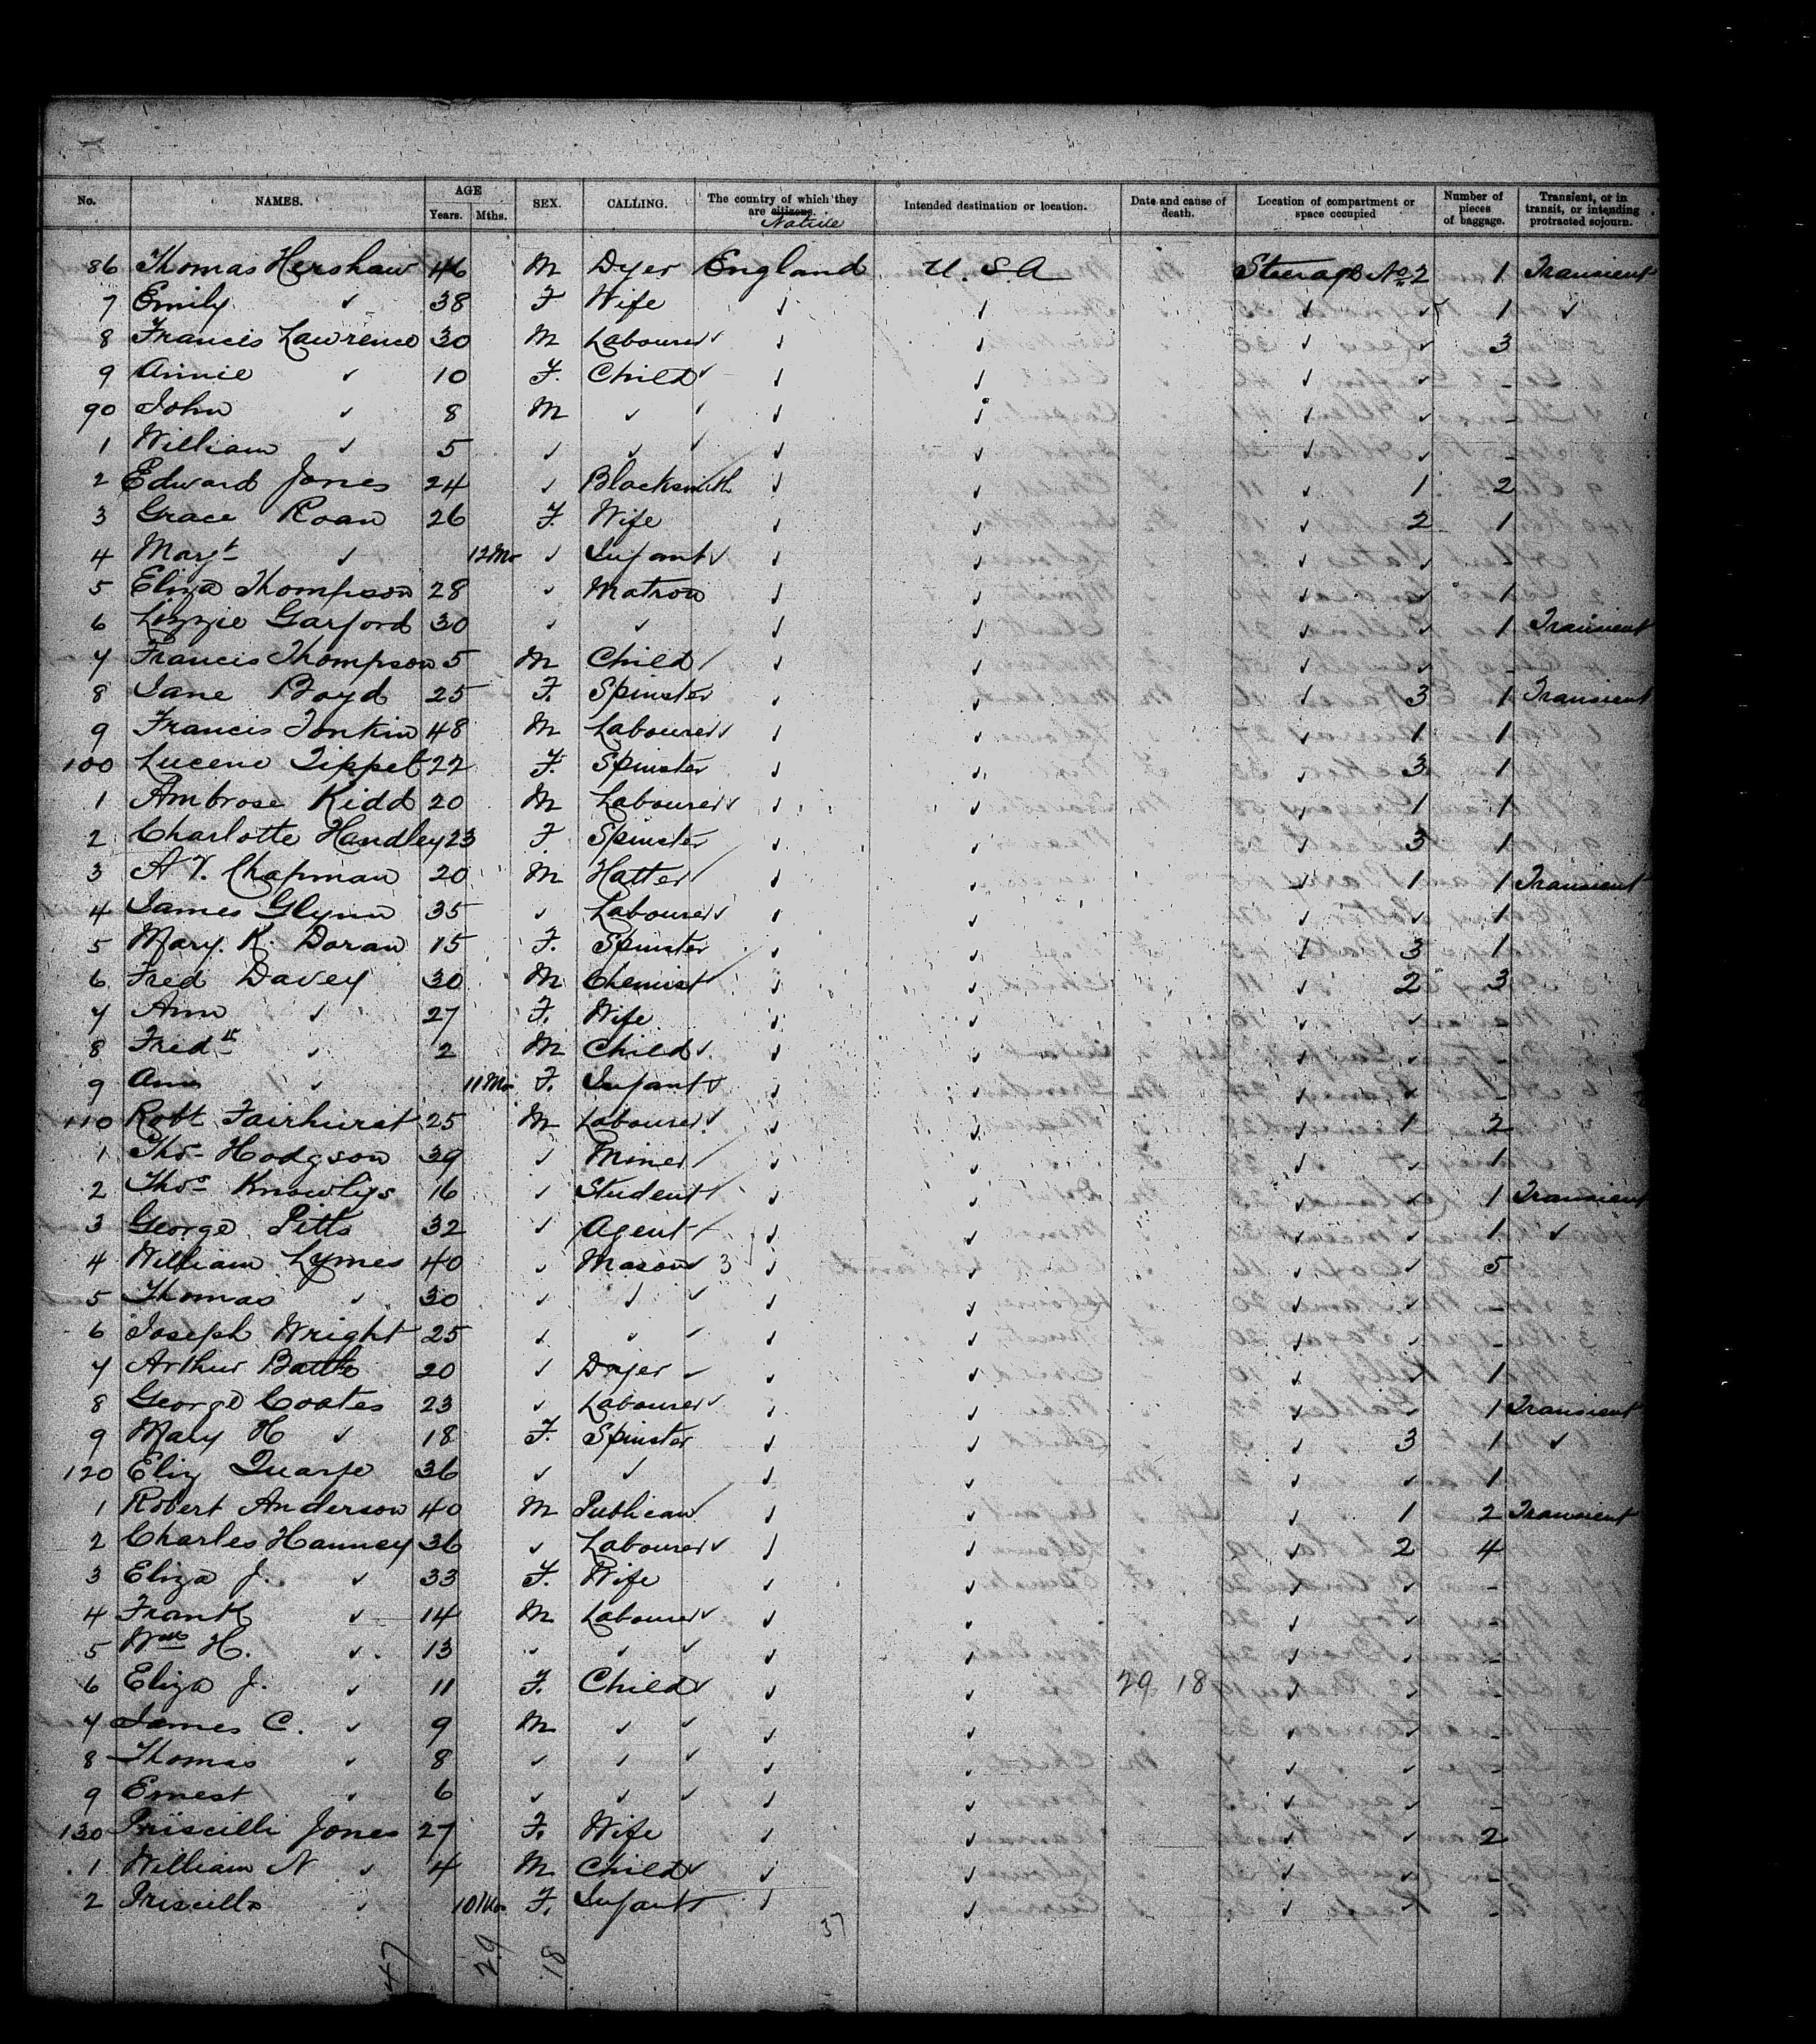 No. NAMES. AGE Years. Mths. SEX. CALLING. The country of which they are citizens. Native Intended destination or location. Date and cause of death. Location of compartment or space occupied Number of pieces of baggage. Transient, or in transit, or intending protracted sojourn.
86 Thomas Hershaw 46 M Dyer England U.S.A Steerage No 2 1 Transient
7 Emily ✓ 38 F Wife ✓ ✓ ✓ ✓ 1 ✓
8 Francis Lawrence 30 M Labourer ✓ ✓ ✓ ✓ 3
9 Annie ✓ 10 F. Child ✓ ✓ ✓ ✓ -
90 John ✓ 8 M ✓ ✓ ✓ ✓ ✓ -
1 William ✓ 5 ✓ ✓ ✓ ✓ ✓ ✓ -
2 Edward Jones 24 ✓ Blacksmith ✓ ✓ ✓ 1 2
3 Grace Roan 26 F. Wife ✓ ✓ ✓ 2 1
4 Margt ✓ 12 Mo ✓ Infant ✓ ✓ ✓ ✓ -
5 Eliza Thompson 28 ✓ Matron ✓ ✓ ✓ ✓ 1
6 Lizzie Garford 30 ✓ ✓ ✓ ✓ ✓ ✓ 1 Transient
7 Francis Thompson 5 M Child ✓ ✓ ✓ ✓ -
8 Jane Boyd 25 F. Spinster ✓ ✓ ✓ 3 1 Transient
9 Francis Tonkin 48 M Labourer ✓ ✓ ✓ 1 1
100 Lucene Tippet 22 F. Spinster ✓ ✓ ✓ 3 1
1 Ambrose Kidd 20 M Labourer ✓ ✓ ✓ 1 1
2 Charlotte Handley 23 F Spinster ✓ ✓ ✓ 3 1
3 A T. Chapman 20 M Hatter ✓ ✓ ✓ 1 1 Transient
4 James Glynn 35 ✓ Labourer ✓ ✓ ✓ ✓ 1
5 Mary. K. Doran 15 F. Spinster ✓ ✓ ✓ 3 1
6 Fred Davey 30 M Chemist ✓ ✓ ✓ 2 3
7 Ann ✓ 27 F. Wife ✓ ✓ ✓ ✓ -
8 Fredk ✓ 2 M Child ✓ ✓ ✓ ✓ -
9 Ann ✓ 11 Mo F. Infant ✓ ✓ ✓ ✓ -
110 Robt Fairhurst 25 M Labourer ✓ ✓ ✓ 1 2
1 Thos Hodgson 39 ✓ Miner ✓ ✓ ✓ ✓ 1
2 Thos Knowlys 16 ✓ Student ✓ ✓ ✓ ✓ 1 Transient
3 George Pitts 32 ✓ Agent ✓ ✓ ✓ ✓ 1 ✓
4 William Lymes 40 ✓ Mason 3 ✓ ✓ ✓ ✓ 5
5 Thomas ✓ 30 ✓ ✓ ✓ ✓ ✓ ✓ -
6 Joseph Wright 25 ✓ ✓ ✓ ✓ ✓ ✓ -
7 Arthur 20 ✓ Dyer ✓ ✓ ✓ ✓ 1
8 George Coates 23 ✓ Labourer ✓ ✓ ✓ ✓ 1 Transient
9 Mary H ✓ 18 F. Spinster ✓ ✓ ✓ 3 1 ✓
120 Eliz Quarfe 36 ✓ ✓ ✓ ✓ ✓ ✓ 1
1 Robert Anderson 40 M Publican ✓ ✓ ✓ 1 2 Transient
2 Charles Hanney 36 ✓ Labourer ✓ ✓ ✓ 2 4
3 Eliza J. ✓ 33 F. Wife ✓ ✓ ✓ ✓ -
4 Frank ✓ 14 M Labourer ✓ ✓ ✓ ✓ -
5 Wm H. ✓ 13 ✓ ✓ ✓ ✓ ✓ ✓ -
6 Eliza J. ✓ 11 F. Child ✓ ✓ 29 18 ✓ ✓ -
7 James C. ✓ 9 M ✓ ✓ ✓ ✓ ✓ -
8 Thomas ✓ 8 ✓ ✓ ✓ ✓ ✓ ✓ -
9 Ernest ✓ 6 ✓ ✓ ✓ ✓ ✓ ✓ -
130 Priscilli Jones 27 F. Wife ✓ ✓ ✓ ✓ 2
1 William N ✓ 4 M Child ✓ ✓ ✓ ✓ -
2 Priscilla ✓ 10 Mo F. Infant ✓ ✓ ✓ ✓ -
37
47 29 18